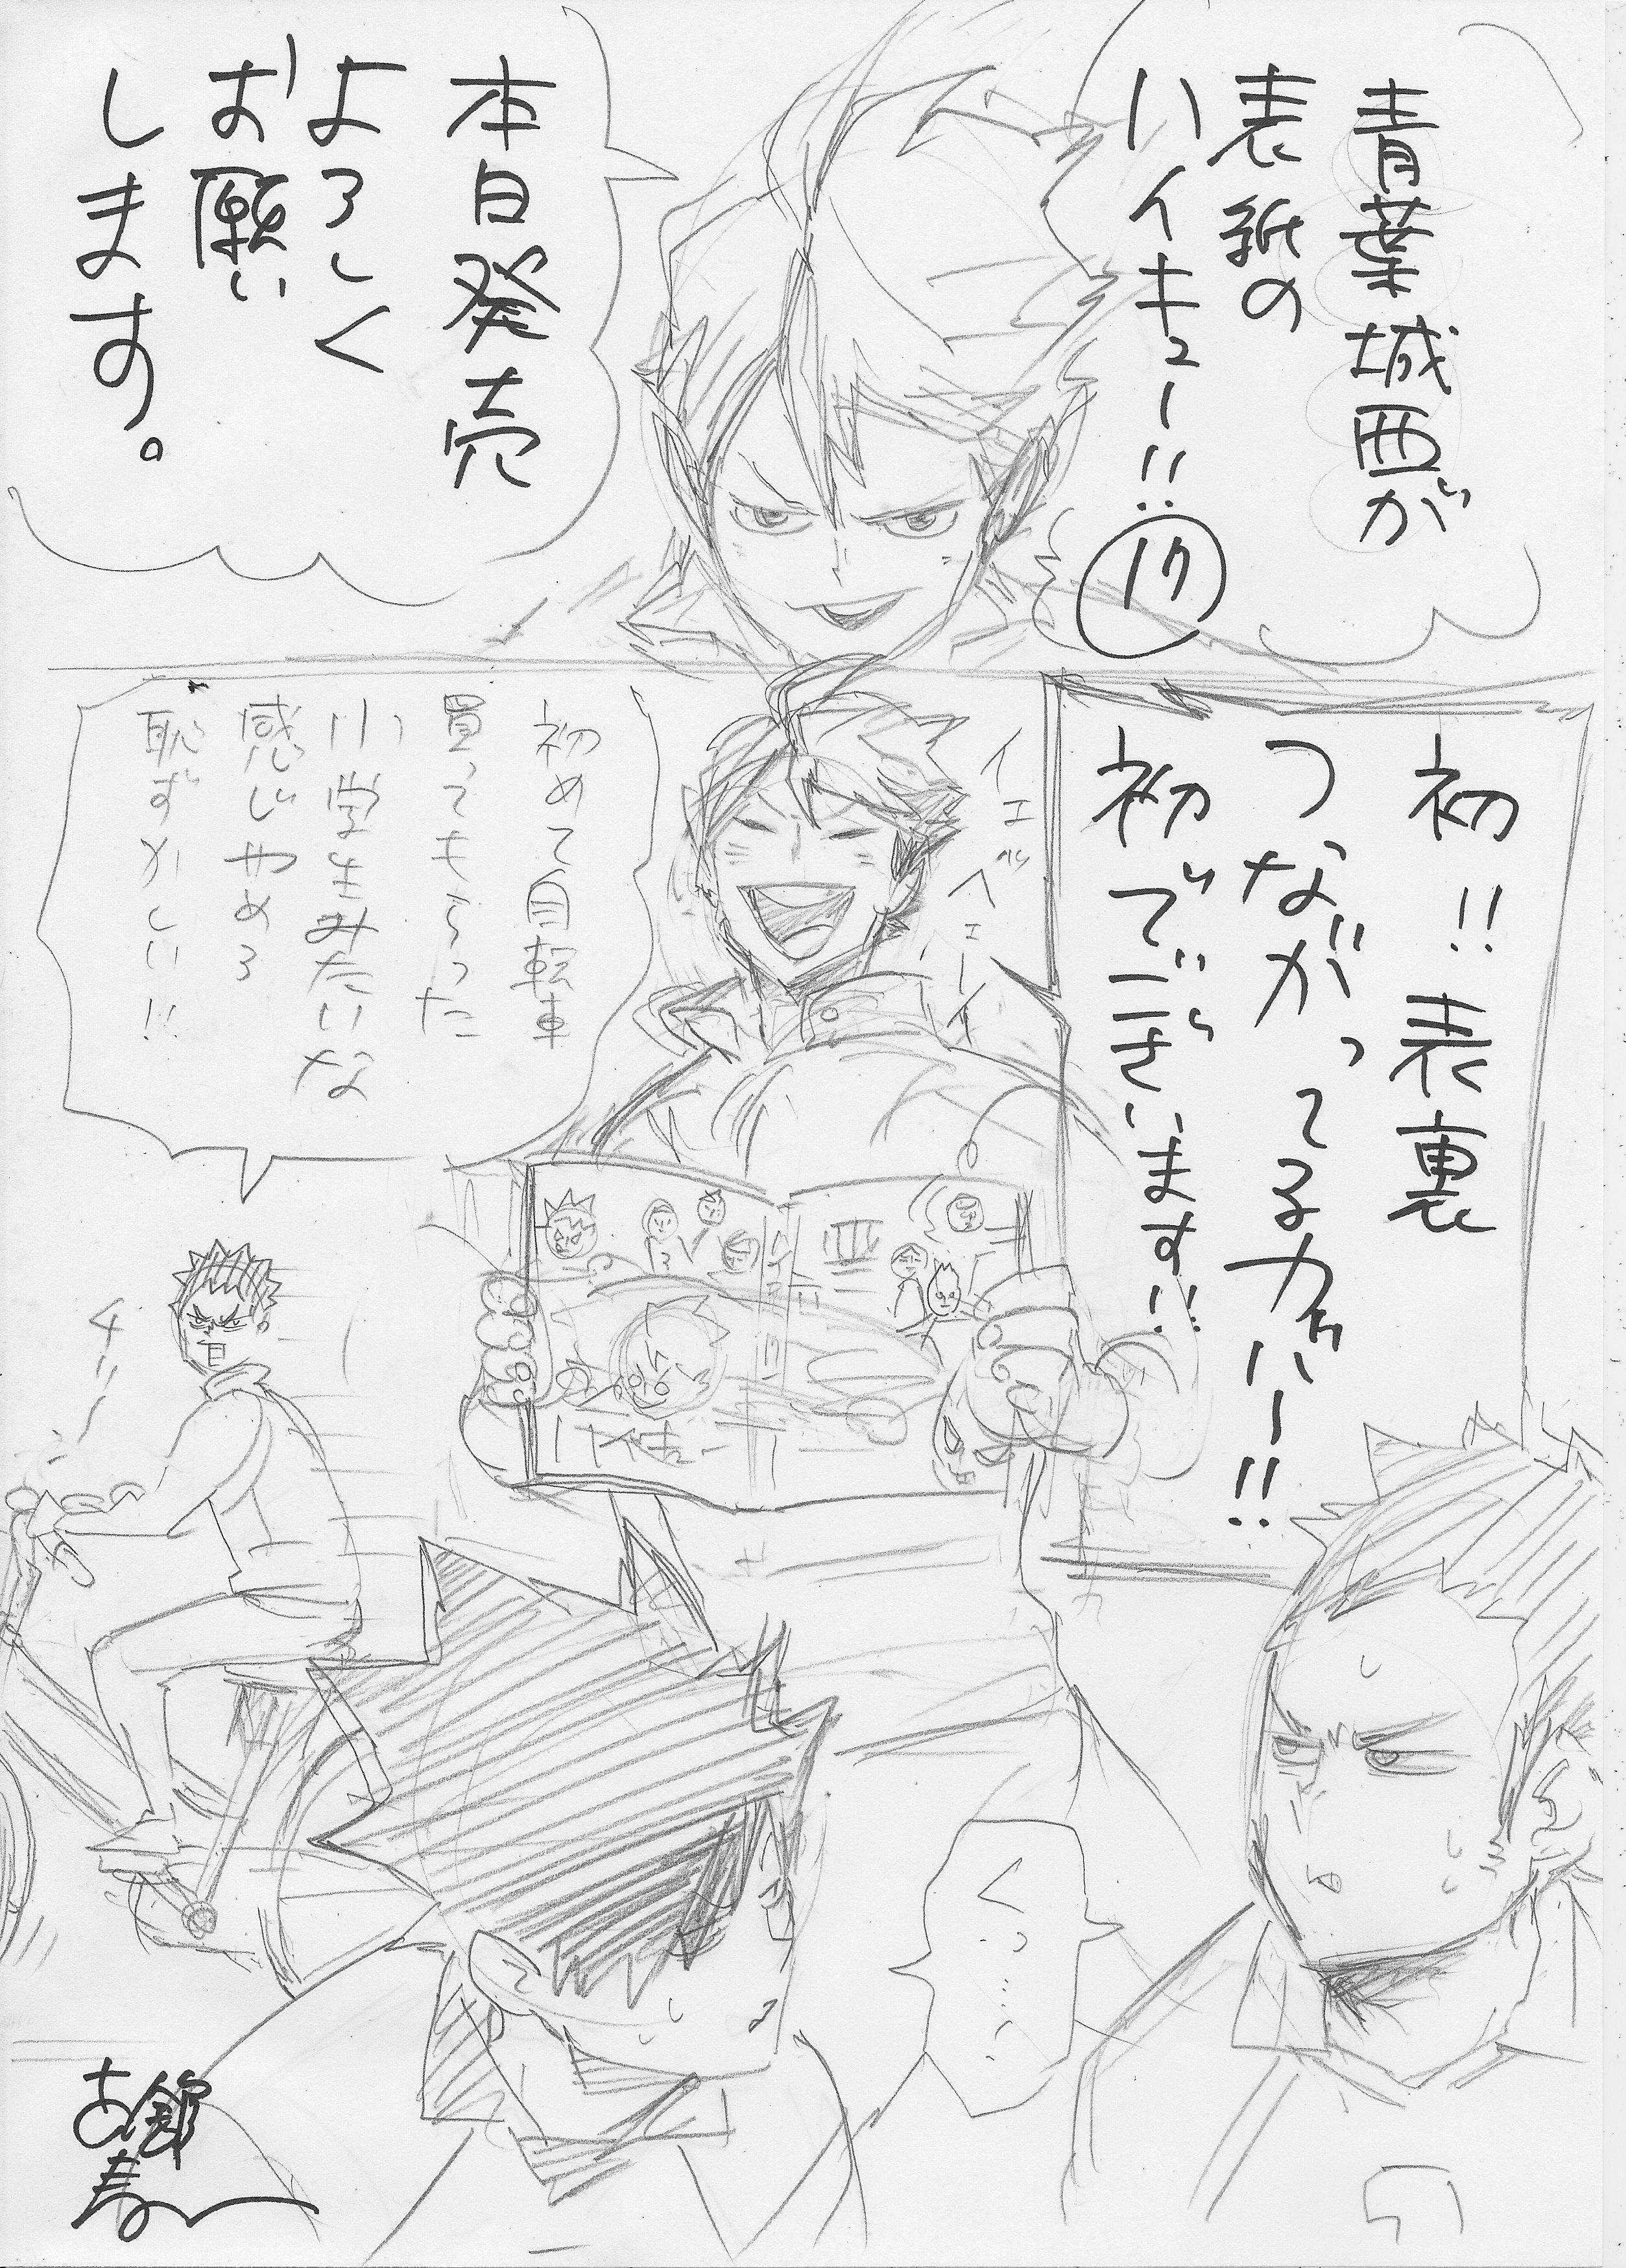 青葉城西が
表紙の
ハイキュー!!
17
本日発売
よろしく
お願い
します。
初!! 表裏
つながってるカバー!!
初でございます!!
イエーイ
初めて自転車
買ってもらった
小学生みたいな
感じやめろ
恥ずかしい!!
チリン
ハイキュー
くっ……
古舘
春一